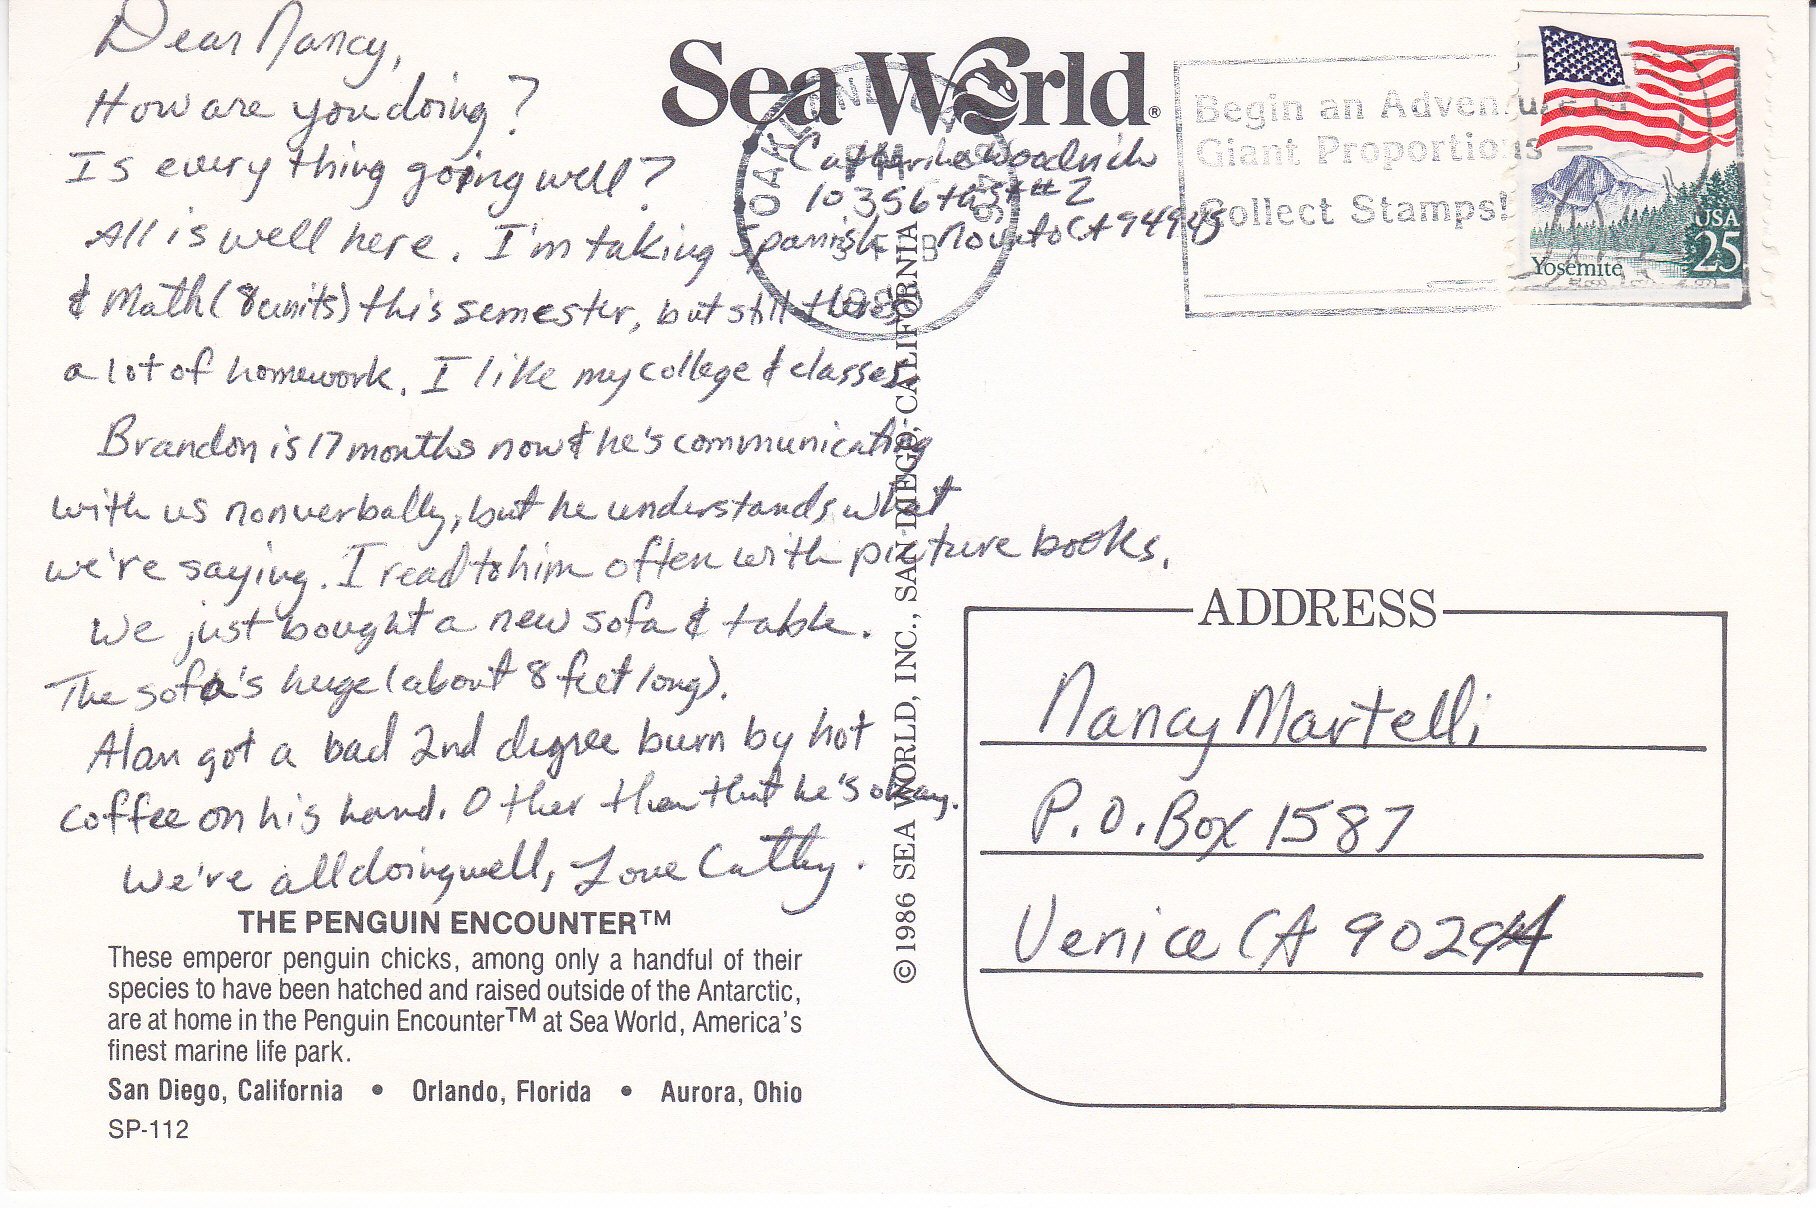 Dear Nancy,
How are you doing?
Is every thing going well?
All is well here. I'm taking Spanish
& Math (8 units) this semester, but still there's
a lot of homework. I like my college & classes.
Brandon is 17 months now & he's communicating
with us nonverbally, but he understands what
we're saying. I read to him often with picture books.
We just bought a new sofa & table.
The sofa's huge (about 8 feet long).
Alan got a bad 2nd degree burn by hot
coffee on his hand. Other than that he's okay.
We're all doing well, Love Cathy.
THE PENGUIN ENCOUNTER™
These emperor penguin chicks, among only a handful of their
species to have been hatched and raised outside of the Antarctic,
are at home in the Penguin Encounter™ at Sea World, America's
finest marine life park.
San Diego, California • Orlando, Florida • Aurora, Ohio
SP-112
Sea World®
#2
Novato CA
OAKLAND
PM
FEB
© 1986 SEA WORLD, INC., SAN DIEGO, CALIFORNIA
Begin an Adventure
Giant Proportions—
Collect Stamps!
USA
25
Yosemite
ADDRESS
Nancy Martelli
P.O. Box 1587
Venice CA 90294